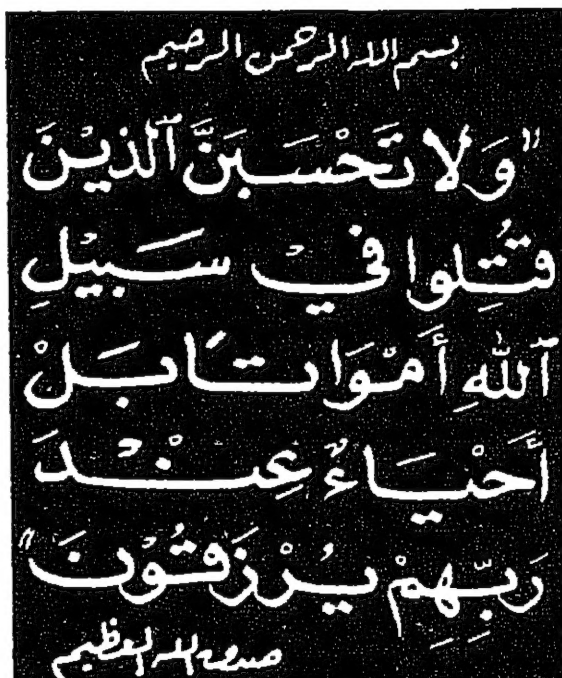 بسم الله الرحمن الرحيم
"وَلا تَحْسَبَنَّ ٱلذيْنَ
قتُلِوا فيْ سَبيْلِ
ٱللّٰهِ أَمْوَاتًا بَلْ
أَحْيَاءٌ عِنْدَ
رَبِّهِمْ يُرْزَقُوْنَ"
صدق الله العظيم